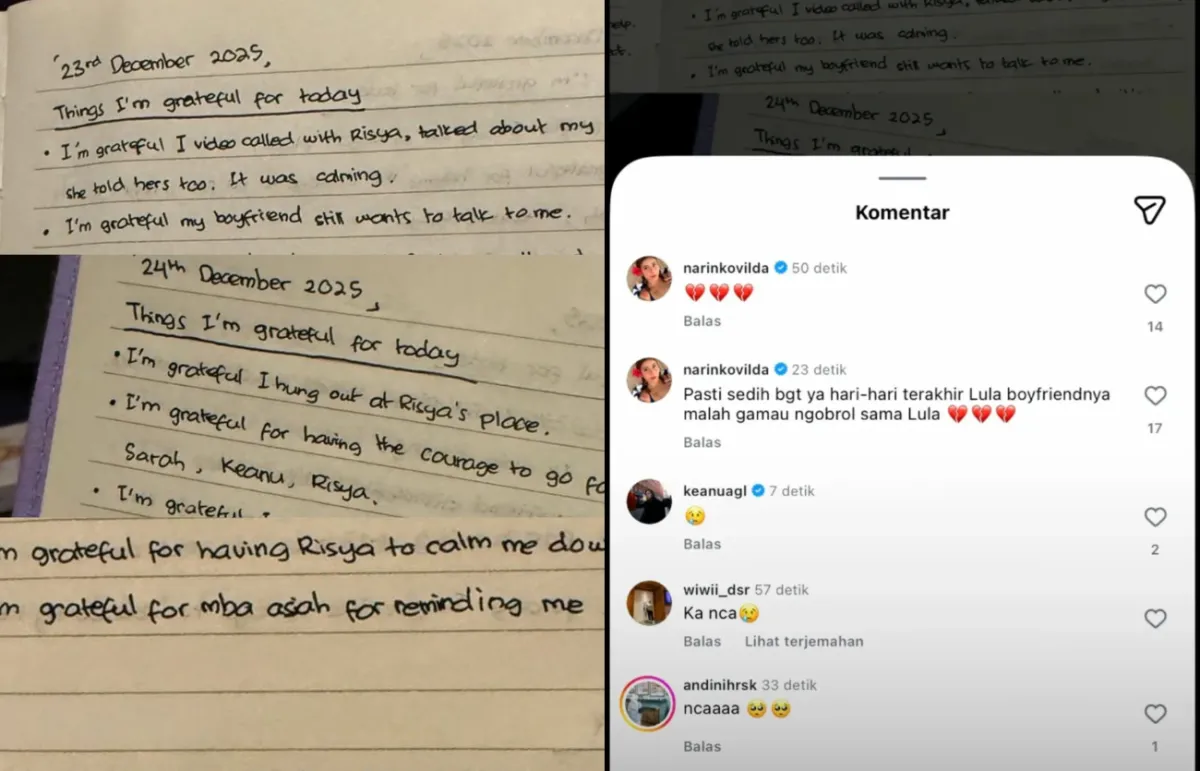 23rd December 2025,
Things I'm grateful for today
• I'm grateful I video called with Risya, talked about my
she told hers too. It was calming.
• I'm grateful my boyfriend still wants to talk to me.
24th December 2025,
Things I'm grateful for today
• I'm grateful I hung out at Risya's place.
• I'm grateful for having the courage to go
Sarah, Keanu, Risya.
• I'm grateful
grateful for having Risya to calm me
grateful for mba asiah for reminding me
• I'm grateful I video called with Risya,
she told hers too. It was calming.
• I'm grateful my boyfriend still wants to talk to me.
24th December 2025,
Things I'm grateful
Komentar
narinkovilda 50 detik
💔💔💔
Balas
14
narinkovilda 23 detik
Pasti sedih bgt ya hari-hari terakhir Lula boyfriendnya
malah gamau ngobrol sama Lula 💔💔💔
17
Balas
keanuagl 7 detik
😢
Balas
2
wiwii_dsr 57 detik
Ka nca😢
Balas Lihat terjemahan
andinihrsk 33 detik
ncaaaa 🥺🥺
Balas
1